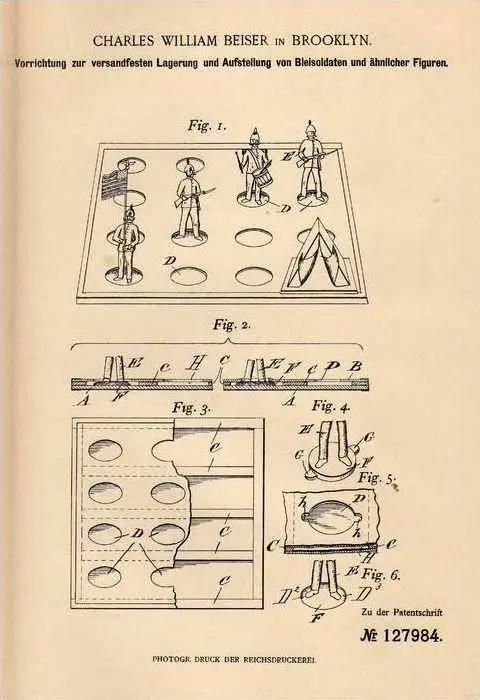 CHARLES WILLIAM BEISER IN BROOKLYN.
Vorrichtung zur versandfesten Lagerung und Aufstellung von Bleisoldaten und ähnlicher Figuren.
Fig. 1.
E
D
D
Fig. 2.
E c H C E F c D B
A F A
Fig. 3.
Fig. 4.
C
E
G
G
F
Fig. 5.
C
h D
h
D
C
C C
H
E
Fig. 6.
C
D² D³
F
Zu der Patentschrift
№ 127984.
PHOTOGR. DRUCK DER REICHSDRUCKEREI.